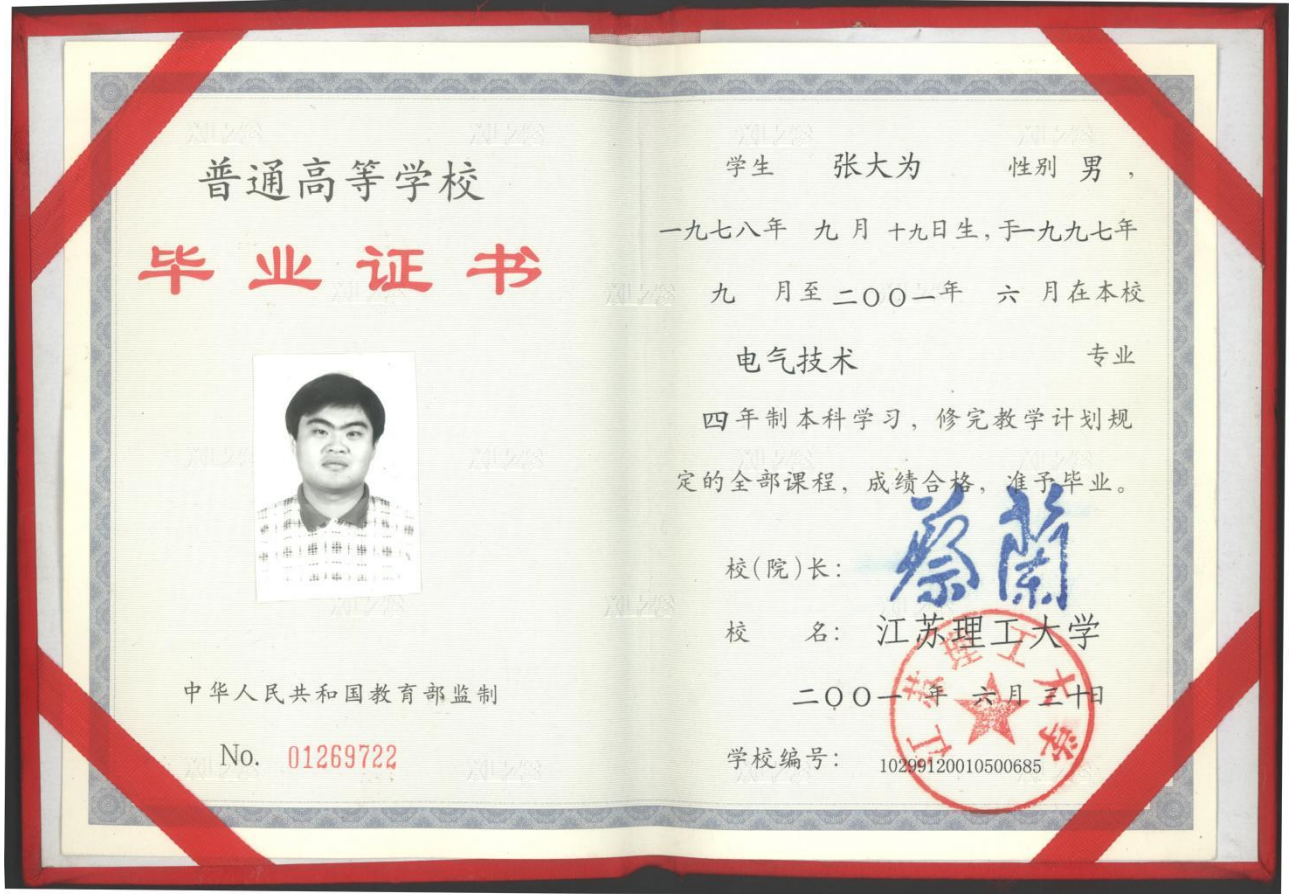 普通高等学校
毕业证书
中华人民共和国教育部监制
No. 01269722
学生 张大为 性别 男,
一九七八年 九月 十九日生,于一九九七年
九 月至二〇〇一年 六 月在本校
电气技术 专业
四年制本科学习,修完教学计划规
定的全部课程,成绩合格,准予毕业。
校(院)长: 蔡蘭
校 名: 江苏理工大学
二〇〇一年 六月三十日
江苏理工大学
学校编号: 10299120010500685